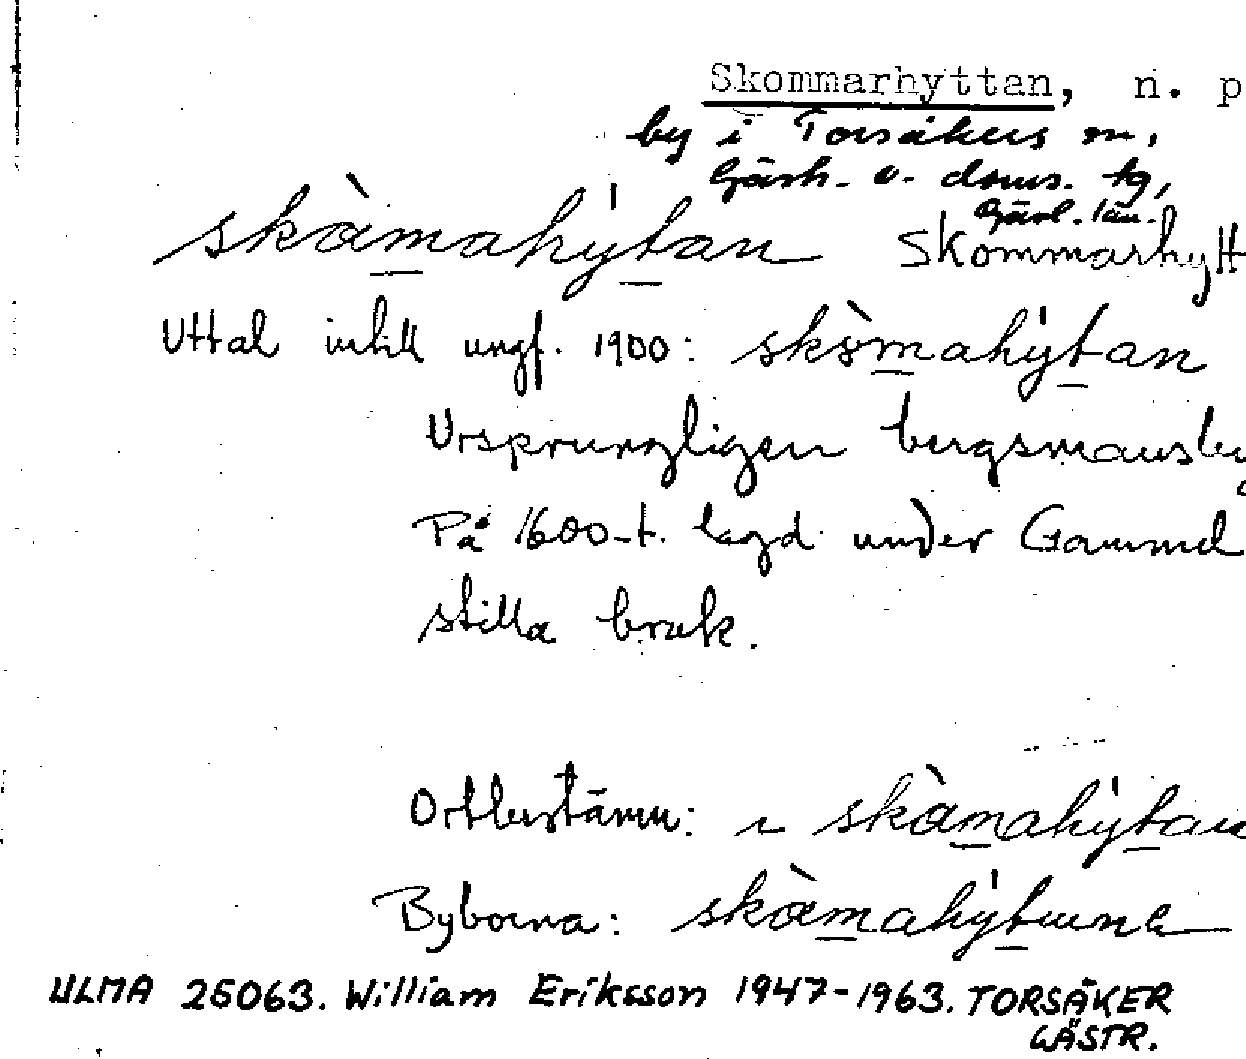 Skommarhyttan, n. p
by i Torsåkers sn,
Gästr. o. doms. tg,
Gävl. län.
skàmahýtan Skommarhytt
Uttal intill ungf. 1900: skòmahýtan
Ursprungligen bergsmansby
På 1600-t. lagd under Gammel
stilla bruk.
Ortbestämn: skàmahýtan
Byborna: skàmahýtuna
ULMA 25063. William Eriksson 1947-1963. TORSÅKER
GÄSTR.